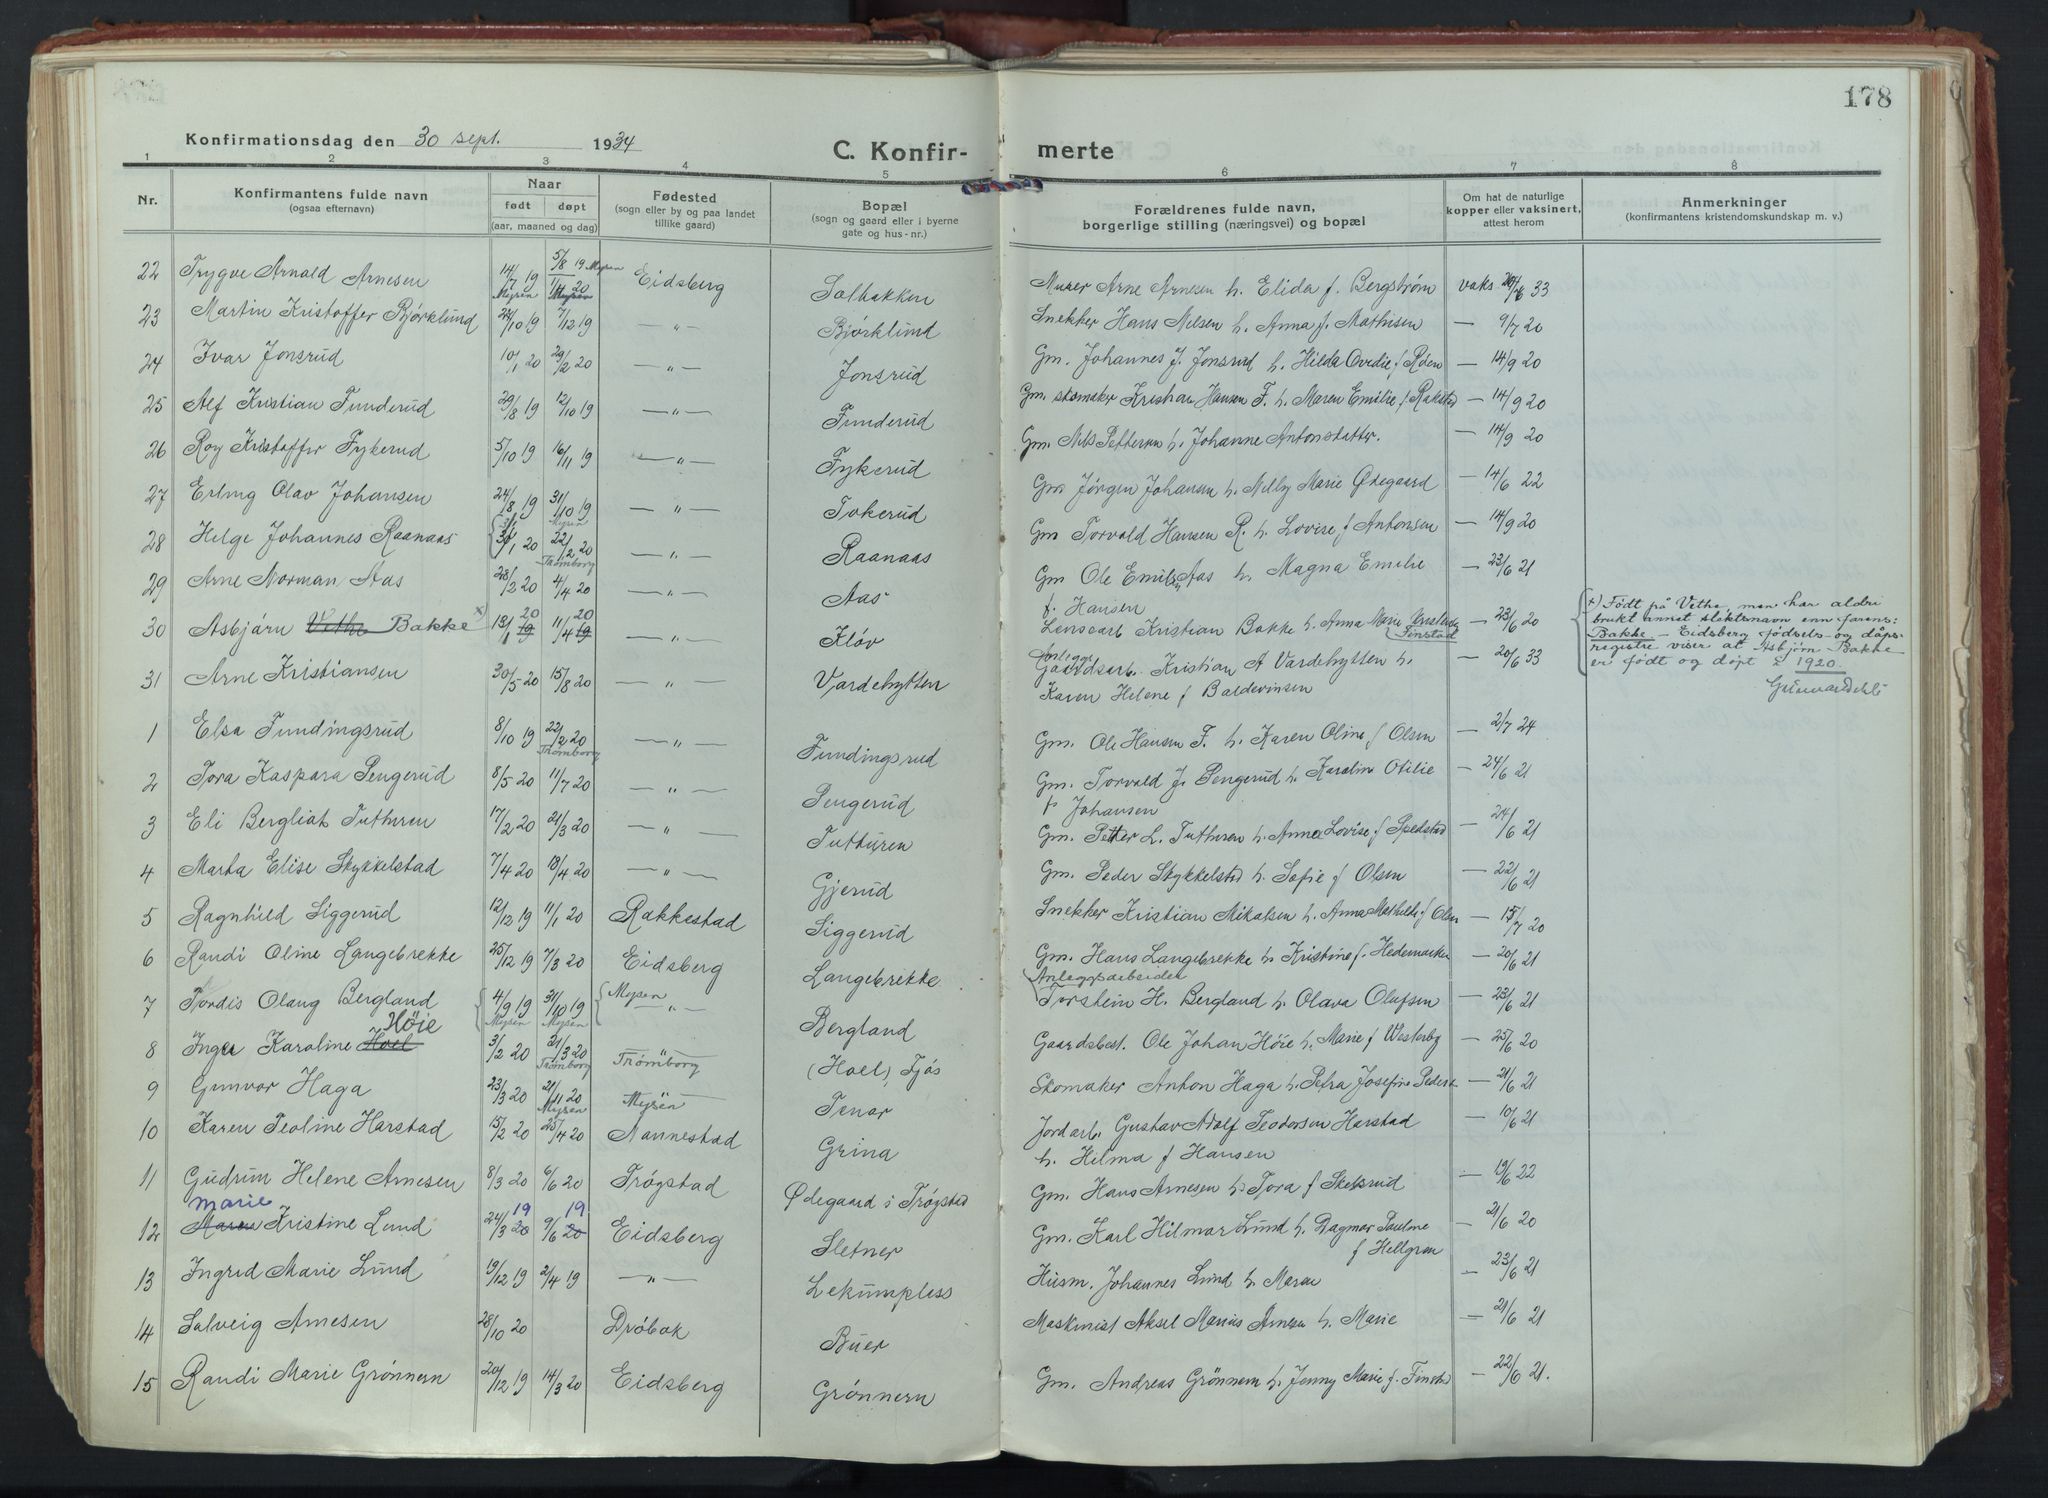 178
Konfirmationsdag den 30 sept. 1934
C. Konfir- merte
1 2 3 4 5 6 7 8
Nr.
Konfirmantens fulde navn
(ogsaa efternavn)
Naar
født døpt
(aar, maaned og dag)
Fødested
(sogn eller by og paa landet
tillike gaard)
Bopæl
(sogn og gaard eller i byerne
gate og hus-nr.)
Forældrenes fulde navn,
borgerlige stilling (næringsvei) og bopæl
Om hat de naturlige
kopper eller vaksinert,
attest herom
Anmerkninger
(konfirmantens kristendomskundskap m. v.)
22 Trygve Arnald Arnesen 14/7 19 Mysen 5/8 19 Mysen Eidsberg Solbakken Murer Arne Arnesen h. Elida f. Bergstrøm vaks 33
23 Martin Kristoffer Bjørklund 24/10 19 7/12 19 — " — Bjørklund Snekker Hans Nilsen h. Anna f. Mathisen — 9/7 20
24 Ivar Jonsrud 10/1 20 29/2 20 — " — Jonsrud Gm. Johannes J. Jonsrud h. Hilda Ovedie f. Røen — 14/9 20
25 Alf Kristian Funderud 29/8 19 12/10 19 — " — Funderud Gm. skomaker Kristian Hansen F. h. Maren Emilie f. Rakstad — 14/9 20
26 Roy Kristoffer Fykerud 5/10 19 16/11 19 — " — Fykerud Gm. Nils Pettersen h. Johanne Antonsdatter. — 14/9 20
27 Erling Olav Johansen 24/8 19 31/10 19 Mysen — " — Tokerud Gm Jørgen Johansen h. Nelly Marie Ødegaard — 14/6 22
28 Helge Johannes Raanaas 1 20 22/2 20 Trømborg — " — Raanaas Gm Torvald Hansen R. h. Lovise f Antonsen — 14/9 20
29 Arne Norman Aas 28/2 20 4/4 20 — " — Aas Gm Ole Emilsen Aas h. Magna Emilie — 23/6 21
f. Hansen
30 Asbjørn Vethe Bakke x 13/1 19 20 11/4 19 20 — " — Kløv Lensearb. Kristian Bakke h. Anna Marie Finstad — 23/6 20
x) Født på Vethe, men har aldri
brukt annet slektsnavn enn farens:
Bakke — Eidsberg fødsels- og dåps-
registre viser at Asbjørn Bakke
er født og døpt i 1920.
31 Arne Kristiansen 30/5 20 15/8 20 — " — Vardehytten Anleggs Gaardsarb. Kristian A Vardehytten h. — 20/6 33
Karen Helene f Baldevinsen
1 Elsa Fundingsrud 8/10 19 22/2 20 Trømborg — " — Fundingsrud Gm. Ole Hansen F. h. Karen Oline f Olsen — 2/7 24
2 Tora Kaspara Pengerud 8/5 20 11/7 20 — " — Pengerud Gm. Torvald J. Pengerud h. Karoline Otilie — 24/6 21
f. Johansen
3 Eli Bergliot Tutturen 17/2 20 21/3 20 — " — Tutturen Gm. Petter L. Tutturen h. Anna Lovise f Spedstad — 24/6 21
4 Marta Elise Skykkelstad 7/4 20 18/4 20 — " — Gjerud Gm. Peder Skykkelstad h. Sofie f Olsen — 22/6 21
5 Ragnhild Siggerud 12/12 19 11/1 20 Rakkestad Siggerud Snekker Kristian Mikalsen h. Anna Mathilde f Olsen — 15/7 20
6 Randi Oline Langebrekke 25/12 19 7/3 20 Eidsberg Langebrekke Gm. Hans Langebrekke h. Kristine f. Hedemarken — 20/6 21
Anleggsarbeider
7 Tordis Olaug Bergland 4/9 19 Mysen 31/10 19 Mysen Mysen — " — Bergland Torstein H. Bergland h. Olava Olafsen — 23/6 21
8 Inger Karoline Hoel Höie 3/2 20 21/3 20 Trømborg Trømborg (Hoel) Fjøs Gaardsbest. Ole Johan Höie h. Marie f Westerby — 25/6 20
9 Gunvor Haga 23/3 20 21/11 20 Mysen Mysen Tenor Skomaker Anton Haga h. Petra Josefine Peders — 21/6 21
10 Karen Teoline Harstad 15/2 20 25/4 20 Nannestad Grina Jordarb. Gustav Adolf Teodorsen Harstad — 10/6 21
h. Hilma f Hansen
11 Gudrun Helene Arnesen 8/3 20 6/6 20 Trøgstad Ødegaard i Trøgstad Gm. Hans Arnesen h. Tora f Skelsrud — 19/6 22
12 Maren Marie Kristine Lund 24/3 20 19 9/6 20 19 Eidsberg Sletner Gm. Karl Hilmar Lund h. Dagmar Pauline — 21/6 20
f Hellgren
13 Ingrid Marie Lund 19/12 19 2/4 19 — " — Lekumpless Husm. Johannes Lund h. Maren — 23/6 21
14 Solveig Arnesen 28/10 20 Drøbak Buer Maskinist Aksel Marius Arnesen h. Marie — 21/6 21
15 Randi Marie Grønnern 20/12 19 14/3 20 Eidsberg Grønnern Gm. Andreas Grønnern h. Jenny Marie f. Finstad — 22/6 21.